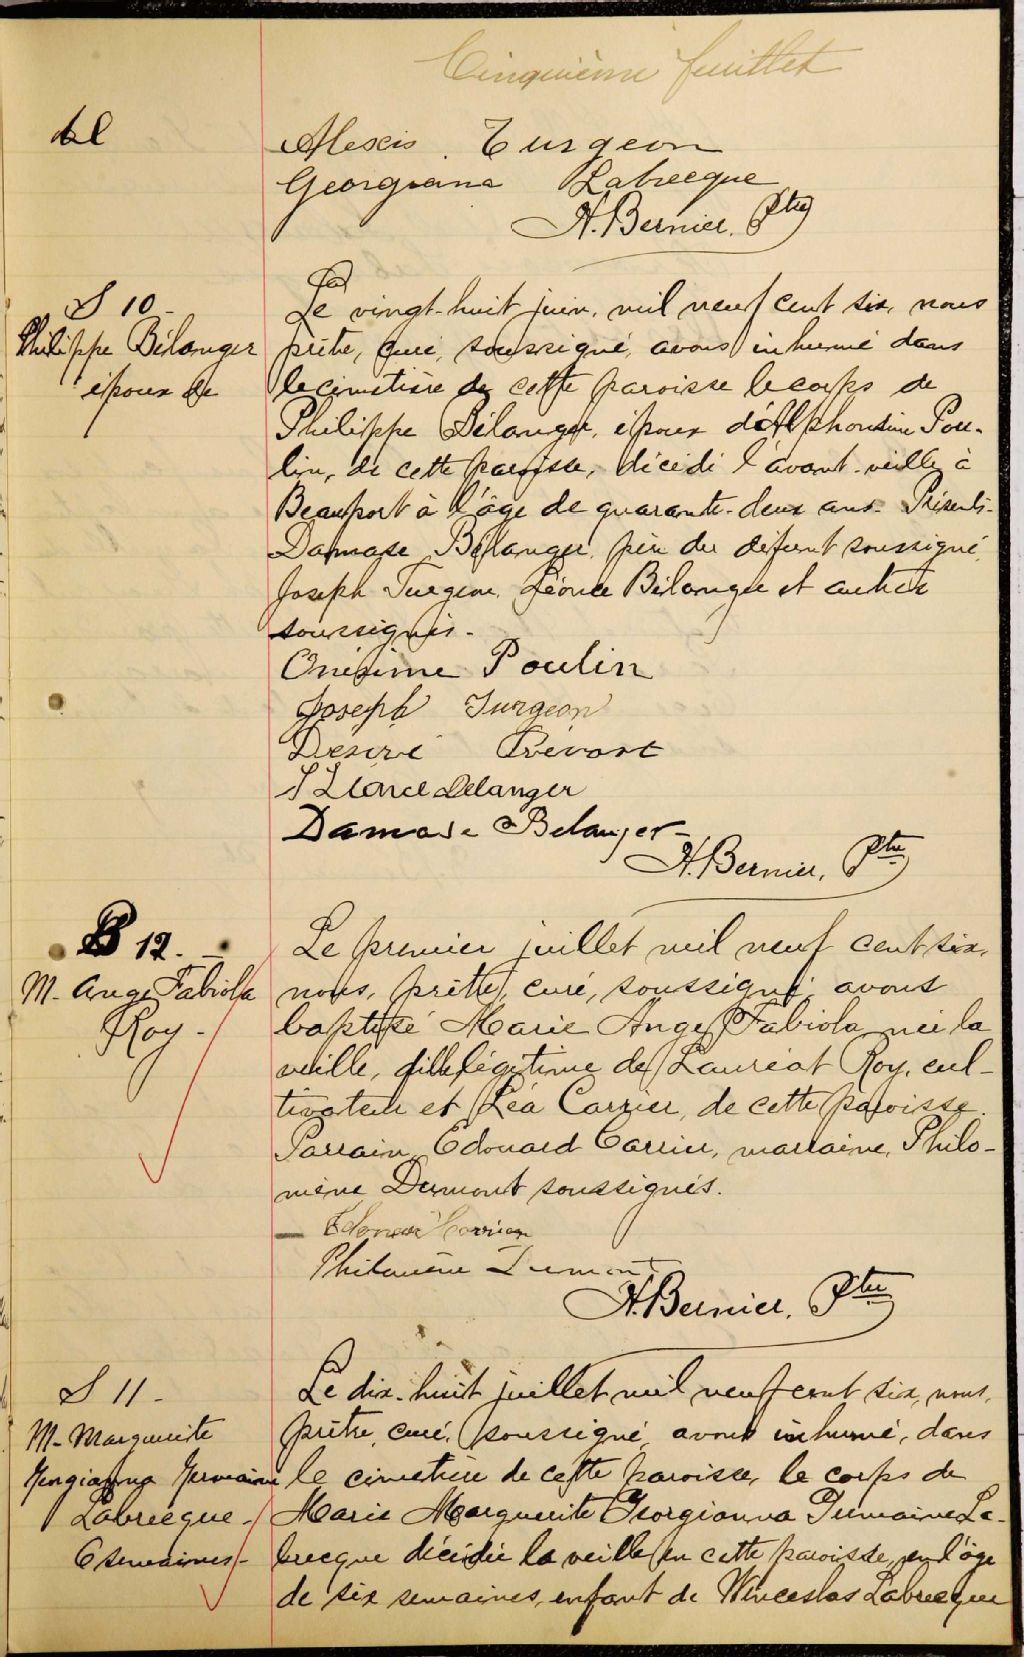 Cinquième feuillet
Alexis Turgeon
Georgiana Labrecque
H. Bernier, Ptre
S 10 -
Philippe Bélanger
époux de
Le vingt-huit juin, mil neuf cent six, nous
prêtre, curé, soussigné, avons inhumé dans
le cimetière de cette paroisse le corps de
Philippe Bélanger, époux d'Alphonsine Pou-
lin, de cette paroisse, décédé l'avant-veille à
Beauport à l'âge de quarante-deux ans. Présents-
Damase Bélanger, père du défunt soussigné,
Joseph Turgeon, Léonce Bélanger et autres
soussignés -
Onésime Poulin
Joseph Turgeon
Désiré Prévost
Belanger
Damase Belanger -
H. Bernier, Ptre
B 12. -
M. Ange Fabiola
Roy -
Le premier juillet mil neuf cent six,
nous, prêtre, curé, soussigné, avons
baptisé Marie Ange Fabiola née la
veille, fille légitime de Lauréat Roy, cul-
tivateur et Léa Carrier, de cette paroisse.
Parrain, Edouard Carrier, marraine, Philo-
mène Dumont soussignés.
Edouard Carrier
Philomène Dumont
H. Bernier, Ptre
S 11 -
M. Marguerite
Georgianna Germaine
Labrecque -
6 semaines -
Le dix-huit juillet mil neuf cent six, nous,
prêtre, curé, soussigné, avons inhumé, dans
le cimetière de cette paroisse, le corps de
Marie Marguerite Georgianna Germaine La-
brecque décédée la veille en cette paroisse, en l'âge
de six semaines, enfant de Wenceslas Labrecque